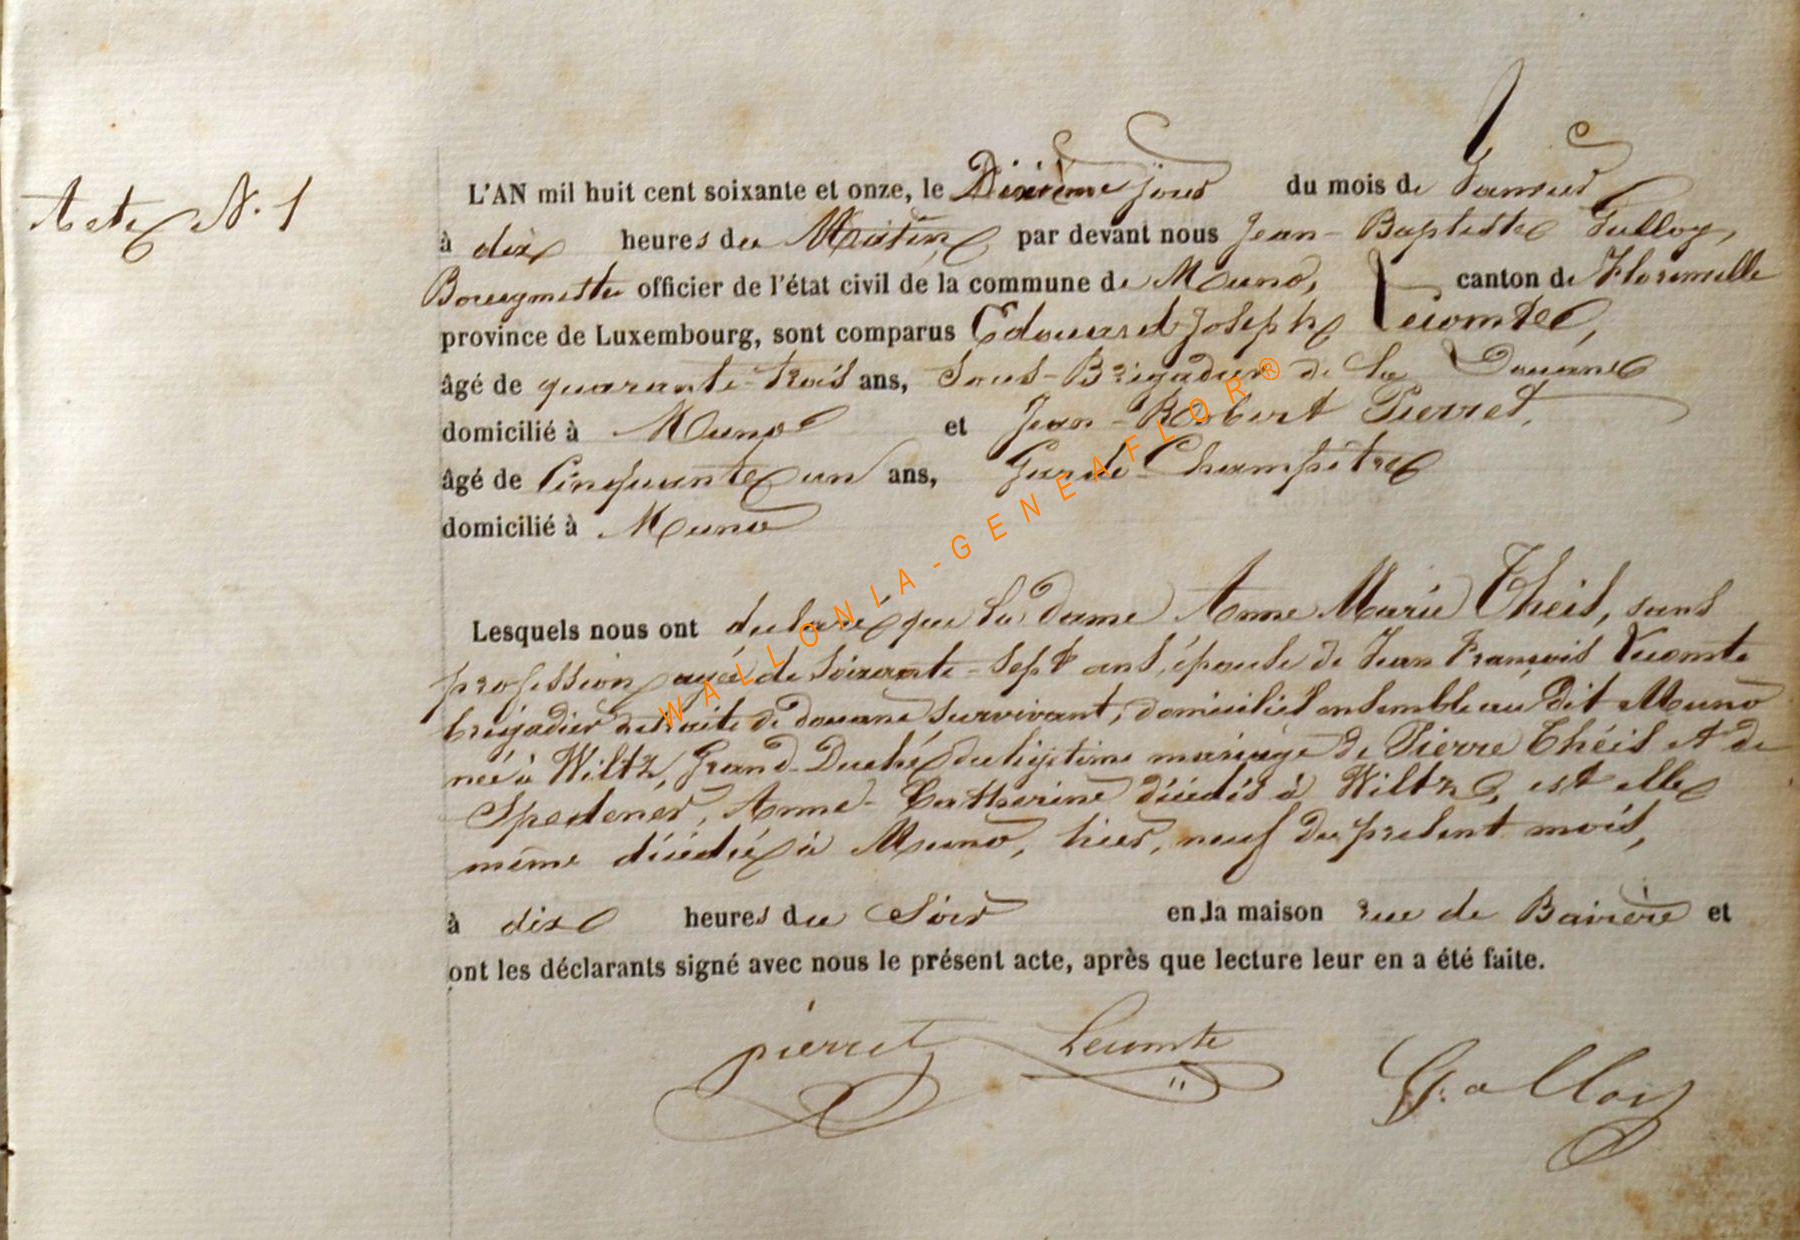 Acte N. 1
L'AN mil huit cent soixante et onze, le Dixième jour du mois de Janvier
à dix heures du Matin, par devant nous Jean-Baptiste Gulloy,
Bourgmestre officier de l'état civil de la commune de Muno, canton de Florenville
province de Luxembourg, sont comparus Edouard Joseph Lecomte,
âgé de quarante-trois ans, Sous-Brigadier de la Douane
domicilié à Muno et Jean-Robert Pierret,
âgé de Cinquante un ans, Garde Champêtre
domicilié à Muno
Lesquels nous ont déclaré que la dame Anne Marie Théis, sans
profession, agée de soixante-sept ans, épouse de Jean François Lecomte
brigadier retraité de douane survivant, domiciliés ensemble au dit Muno
née à Wiltz, Grand-Duché, du légitime mariage de Pierre Théis et de
Anne-Catherine décédés à Wiltz, est elle
même décédée à Muno, hier, neuf du présent mois,
à dix heures du Soir en la maison rue de et
ont les déclarants signé avec nous le présent acte, après que lecture leur en a été faite.
pierret Lecomte Galloy
WALLONIA-GENEAFLOR®